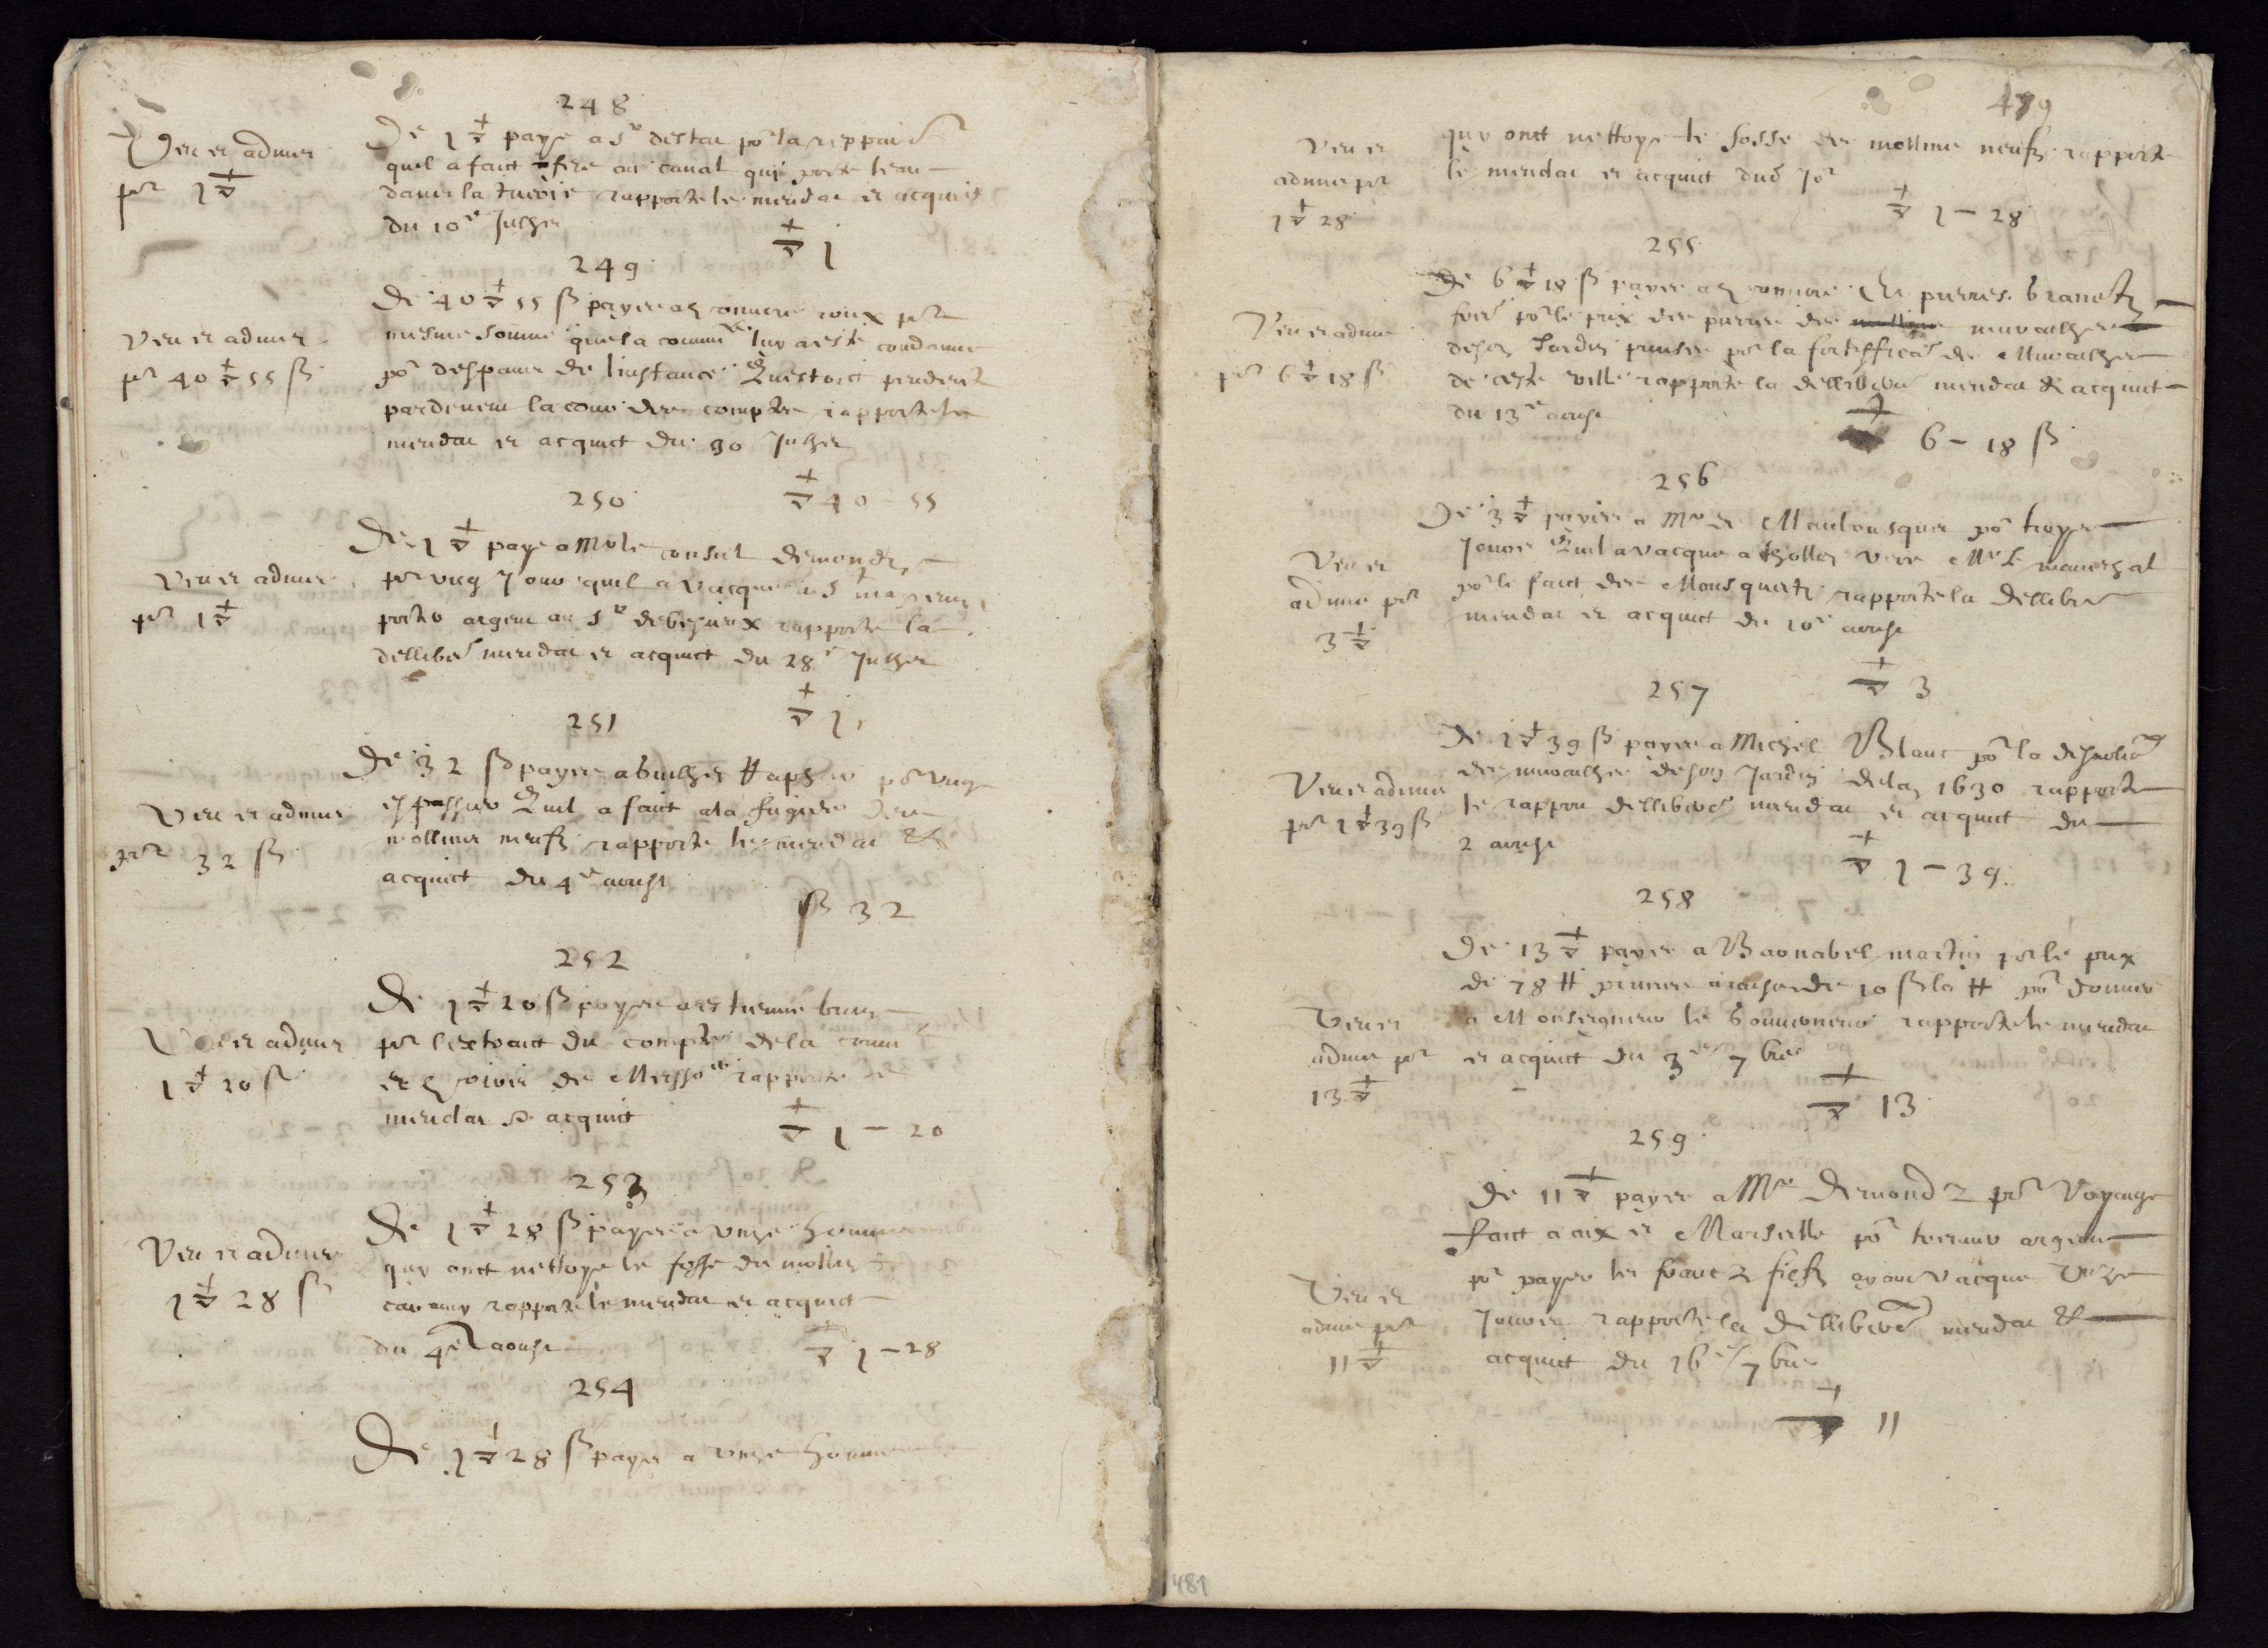 248
Veu et admis
por 1 ▽
De 1 ▽ paye a Sr destar por la repparaon
quel a faict fere au canal qui porte leau
dans la tuerie rapporte le mendat et acquit
du 10e Julhet
▽ 1
249
Veu et admis
por 40 ▽ 55 ß
De 40 ▽ 55 ß payes a roux por
mesme somme que la commte luy a este condamne
por despans de linstance questoit pendente
pardevant la cour des comptes rapporte le
mendat et acquict du 30 Julhet
▽ 40 - 55
250
Veu et admis
por 1 ▽
De 1 ▽ paye a Mr le consul demondz
por ung Jour quil a vacque a St
porter argent au Sr de besieux rapporte la
delliber mendat et acquict du 28e Julhet
▽ 1
251
Veu et admis
por 32 ß
De 32 ß payes a por ung
espassier quil a faict a la des
mollins neufz rapporte le mendat &
acquict du 4e aoust
ß 32
252
Veu et admis
1 ▽ 20 ß
De 1 ▽ 20 ß payes a estienne brun
por lextraict du compte de la comte
de Messrs rapporte le
mendat & acquit
▽ 1 - 20
253
Veu et admis
1 ▽ 28 ß
De 1 ▽ 28 ß payes a unze hommes
quy onct nettoye le fosse du mollin
rapporte le mendat et acquict
du 4e aoust
▽ 1 - 28
254
De 1 ▽ 28 ß payes a unze hommes
479
Veu et
admis por
1 ▽ 28
quy onct nettoye le fosse des mollins neufz rapporte
le mendat et acquict dud Jor
▽ 1 - 28
255
Veu et admis
por 6 ▽ 18 ß
De 6 ▽ 18 ß payes a pierres
por le prix des pierres des muralhes
de son Jardin prinses por la fortifficaon des Muralhes
de ceste ville rapporte la delliberaon mendat & acquit
du 13e aoust
▽ 6 - 18 ß
256
Veu et
admis por
3 ▽
De 3 ▽ payes a Mr de por troys
Jours quil a vacque a tholon vers Mr le mareschal
por le faict des Mousquetz rapporte la delliber
mendat et acquict du 10e aoust
▽ 3
257
Veu et admis
por 1 ▽ 39 ß
De 1 ▽ 39 ß payes a Michel Blanc por la
des muralhes de son Jardin de lan 1630 rapporte
le rapport delliberaon mendat et acquict du
2 aoust
▽ 1 - 39
258
Veu et
admis por
13 ▽
De 13 ▽ payes a Barnabel martin por le prix
de 78 # prunes a raison de 10 ß la # por donner
a Monseigneur le Gouverneur rapporte le mendat
et acquict du 3e 7bre
▽ 13
259
Veu et
admis por
11 ▽
De 11 ▽ payes a Mr Dermondz por Voyage
faict a aix et Marseille por treuver argent
por payer les francz fiefz ayant vacque Unze
Jours rapporte la delliberaon mendat &
acquict du 16e 7bre
▽ 11
481